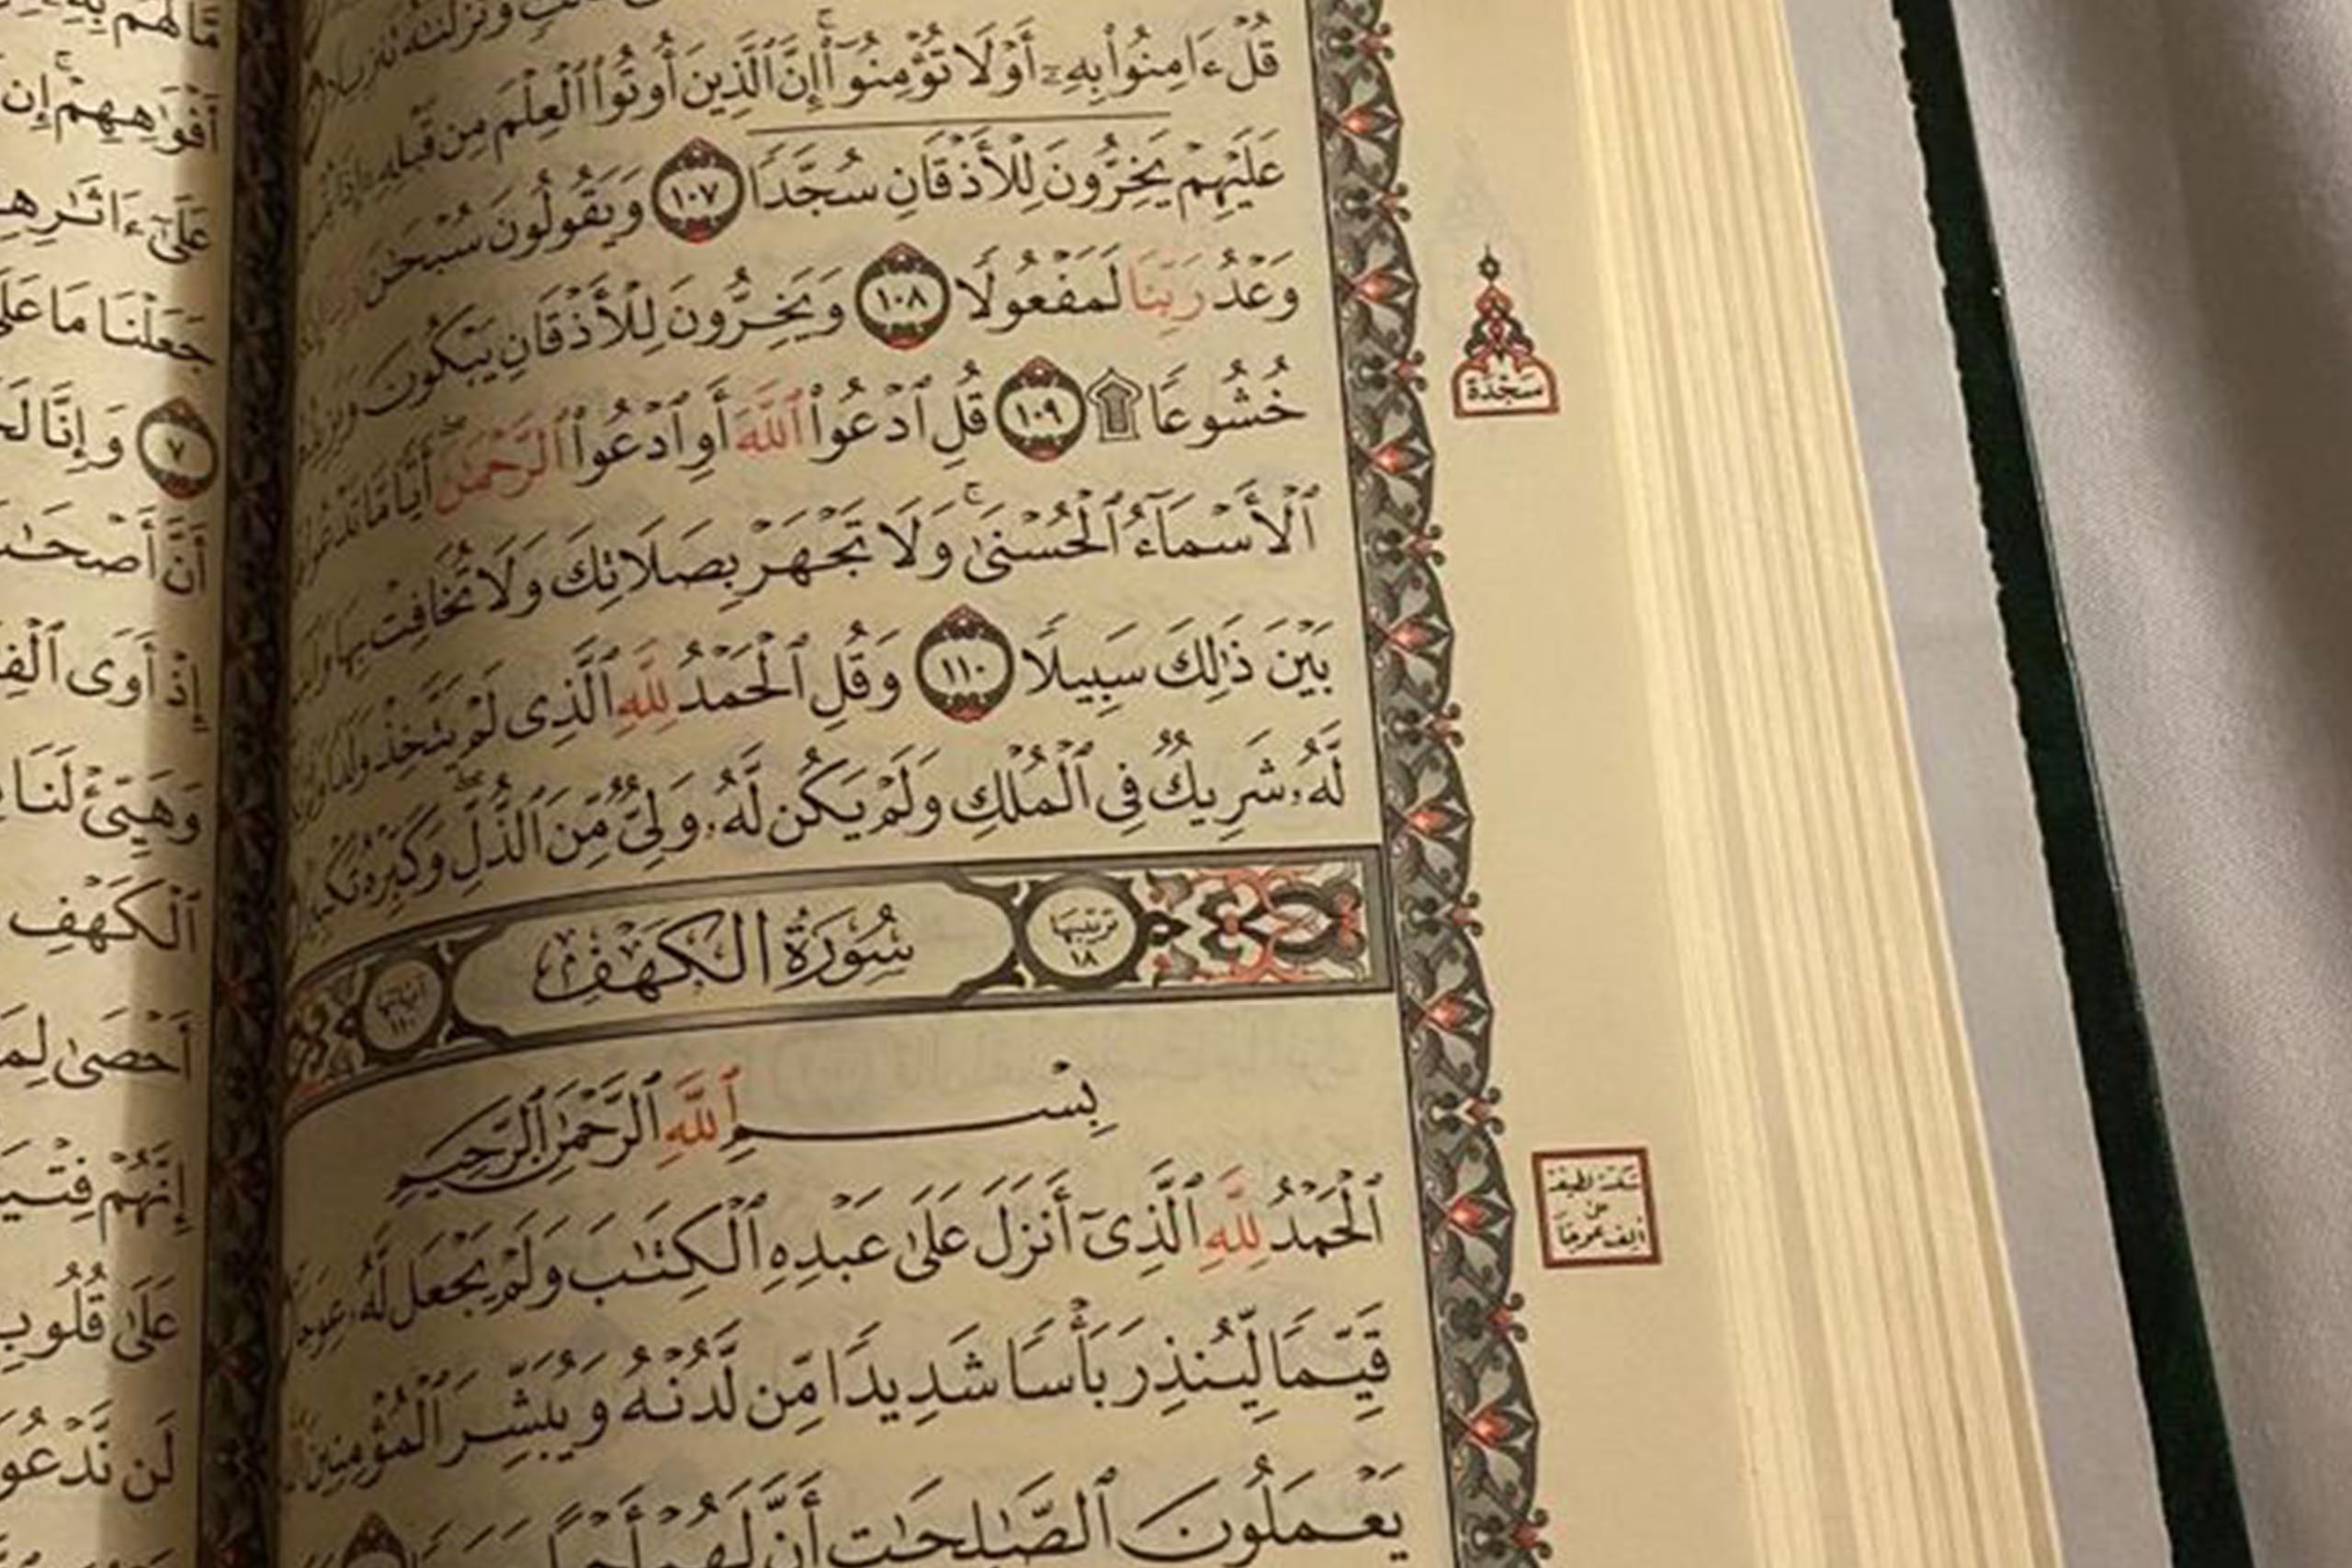 قُلْ ءَامِنُوا۟ بِهِۦٓ أَوْ لَا تُؤْمِنُوٓا۟ ۚ إِنَّ ٱلَّذِينَ أُوتُوا۟ ٱلْعِلْمَ مِن قَبْلِهِۦٓ
عَلَيْهِمْ يَخِرُّونَ لِلْأَذْقَانِ سُجَّدًا ١٠٧ وَيَقُولُونَ سُبْحَٰنَ
وَعْدُ رَبِّنَا لَمَفْعُولًا ١٠٨ وَيَخِرُّونَ لِلْأَذْقَانِ يَبْكُونَ
خُشُوعًا ۩ ١٠٩ قُلِ ٱدْعُوا۟ ٱللَّهَ أَوِ ٱدْعُوا۟ ٱلرَّحْمَٰنَ ۖ أَيًّا مَّا تَدْعُوا۟
سَجْدَة
ٱلْأَسْمَآءُ ٱلْحُسْنَىٰ ۚ وَلَا تَجْهَرْ بِصَلَاتِكَ وَلَا تُخَافِتْ بِهَا
بَيْنَ ذَٰلِكَ سَبِيلًا ١١٠ وَقُلِ ٱلْحَمْدُ لِلَّهِ ٱلَّذِى لَمْ يَتَّخِذْ وَلَدًا
لَّهُۥ شَرِيكٌ فِى ٱلْمُلْكِ وَلَمْ يَكُن لَّهُۥ وَلِىٌّ مِّنَ ٱلذُّلِّ ۖ وَكَبِّرْهُ تَكْبِيرًۢا
ترتيبها ١٨
سُورَةُ الكَهْفِ
آياتها ١١٠
بِسْمِ ٱللَّهِ ٱلرَّحْمَٰنِ ٱلرَّحِيمِ
ٱلْحَمْدُ لِلَّهِ ٱلَّذِىٓ أَنزَلَ عَلَىٰ عَبْدِهِ ٱلْكِتَٰبَ وَلَمْ يَجْعَل لَّهُۥ عِوَجَا
قَيِّمًا لِّيُنذِرَ بَأْسًا شَدِيدًا مِّن لَّدُنْهُ وَيُبَشِّرَ ٱلْمُؤْمِنِينَ
يَعْمَلُونَ ٱلصَّٰلِحَٰتِ أَنَّ لَهُمْ أَجْرًا
أَفْوَٰهِهِمْ ۚ إِن
عَلَىٰٓ ءَاثَٰرِهِمْ
جَعَلْنَا مَا عَلَى
٧ وَإِنَّا
أَنَّ أَصْحَٰبَ
إِذْ أَوَى
وَهَيِّئْ لَنَا
ٱلْكَهْفِ
أَحْصَىٰ لِمَا
إِنَّهُمْ فِتْيَةٌ
عَلَىٰ قُلُوبِهِمْ
لَن نَّدْعُوَا۟